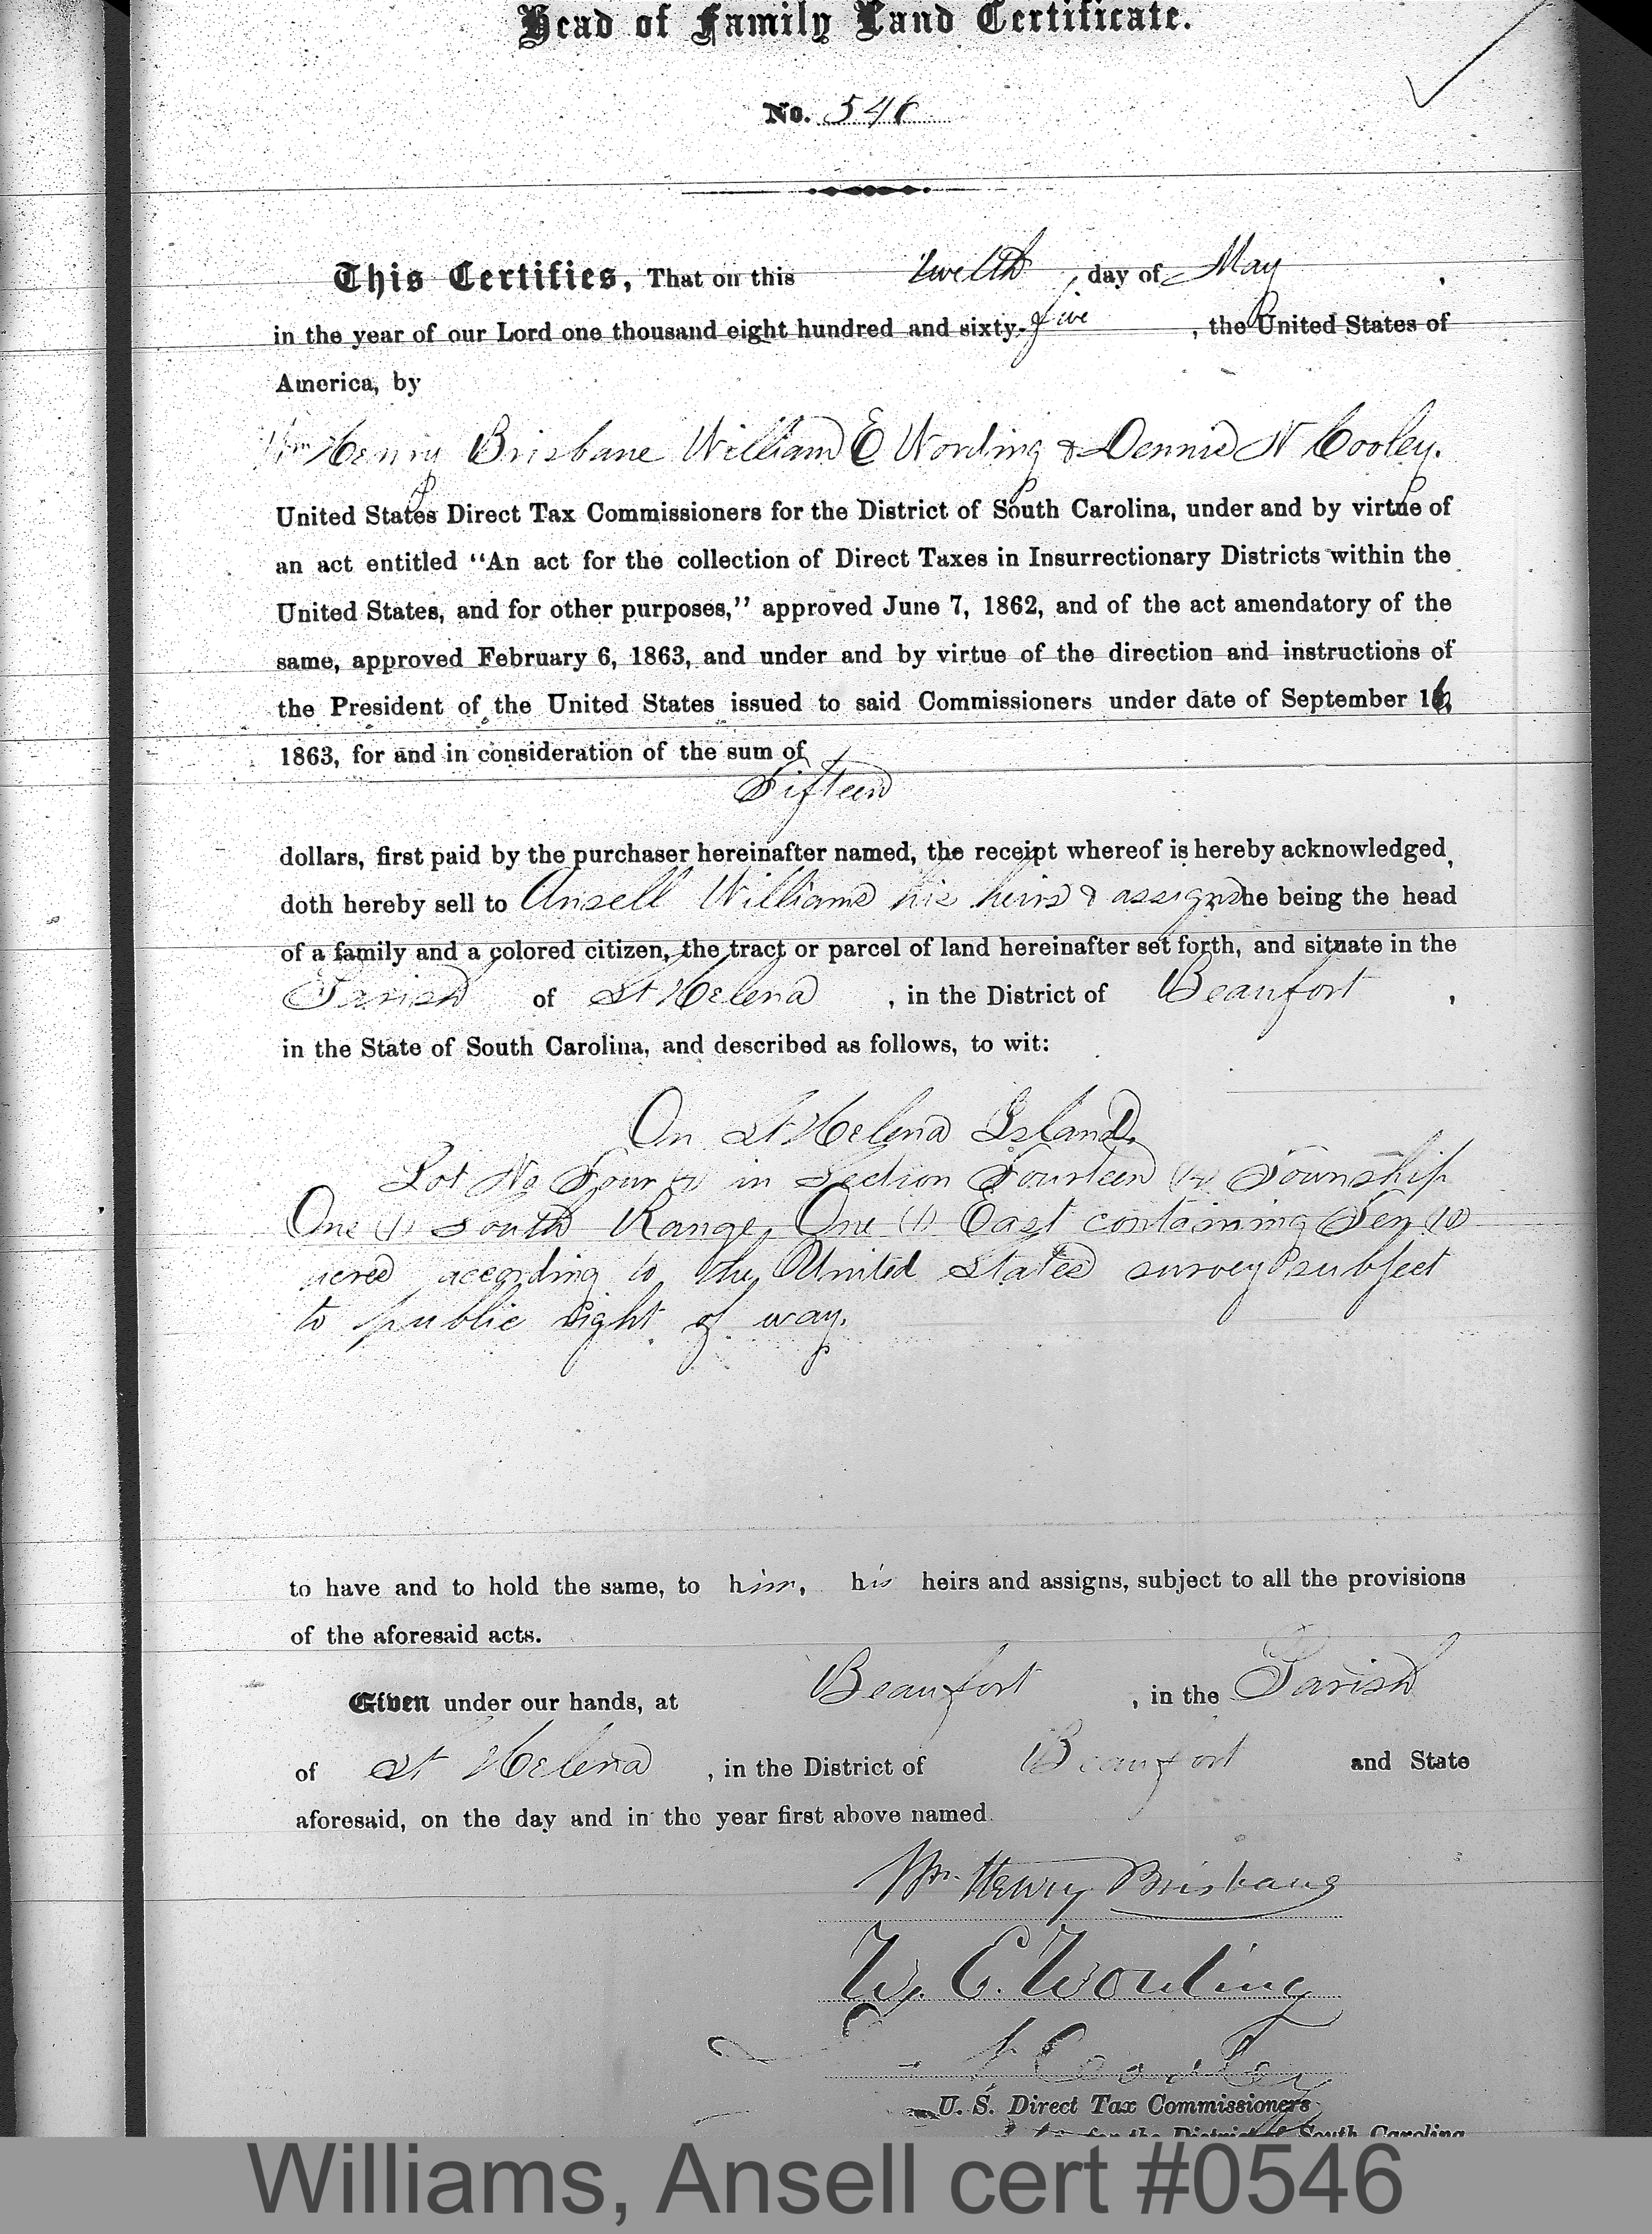 Head of Family Land Certificate.
No. 546
This Certifies, That on this twelth day of May,
in the year of our Lord one thousand eight hundred and sixty-five, the United States of
America, by
Wm Henry Brisbane William E Wording & Dennis N Cooley.
United States Direct Tax Commissioners for the District of South Carolina, under and by virtue of
an act entitled “An act for the collection of Direct Taxes in Insurrectionary Districts within the
United States, and for other purposes,” approved June 7, 1862, and of the act amendatory of the
same, approved February 6, 1863, and under and by virtue of the direction and instructions of
the President of the United States issued to said Commissioners under date of September 16,
1863, for and in consideration of the sum of
Fifteen
dollars, first paid by the purchaser hereinafter named, the receipt whereof is hereby acknowledged,
doth hereby sell to Ansell Williams his heirs & assigns he being the head
of a family and a colored citizen, the tract or parcel of land hereinafter set forth, and situate in the
Parish of St Helena, in the District of Beaufort,
in the State of South Carolina, and described as follows, to wit:
On St Helena Island,
Lot No Four (4) in Section Fourteen (14) Township
One (1) South Range One (1) East containing Ten (10)
acres according to the United States survey subject
to public right of way.
to have and to hold the same, to him, his heirs and assigns, subject to all the provisions
of the aforesaid acts.
Given under our hands, at Beaufort, in the Parish
of St Helena, in the District of Beaufort and State
aforesaid, on the day and in the year first above named.
Wm. Henry Brisbane
W. E. Wording
N Cooley
U. S. Direct Tax Commissioners
for the District of South Carolina
Williams, Ansell cert #0546